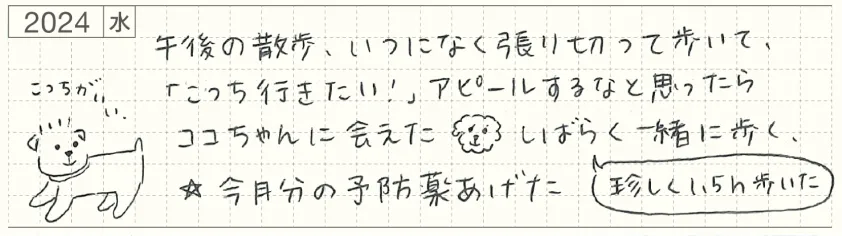 2024 水
午後の散歩、いつになく張り切って歩いて、
「こっち行きたい！」アピールするなと思ったら
ココちゃんに会えた しばらく一緒に歩く、
☆今月分の予防薬あげた
珍しく1.5h歩いた
こっちがいい..